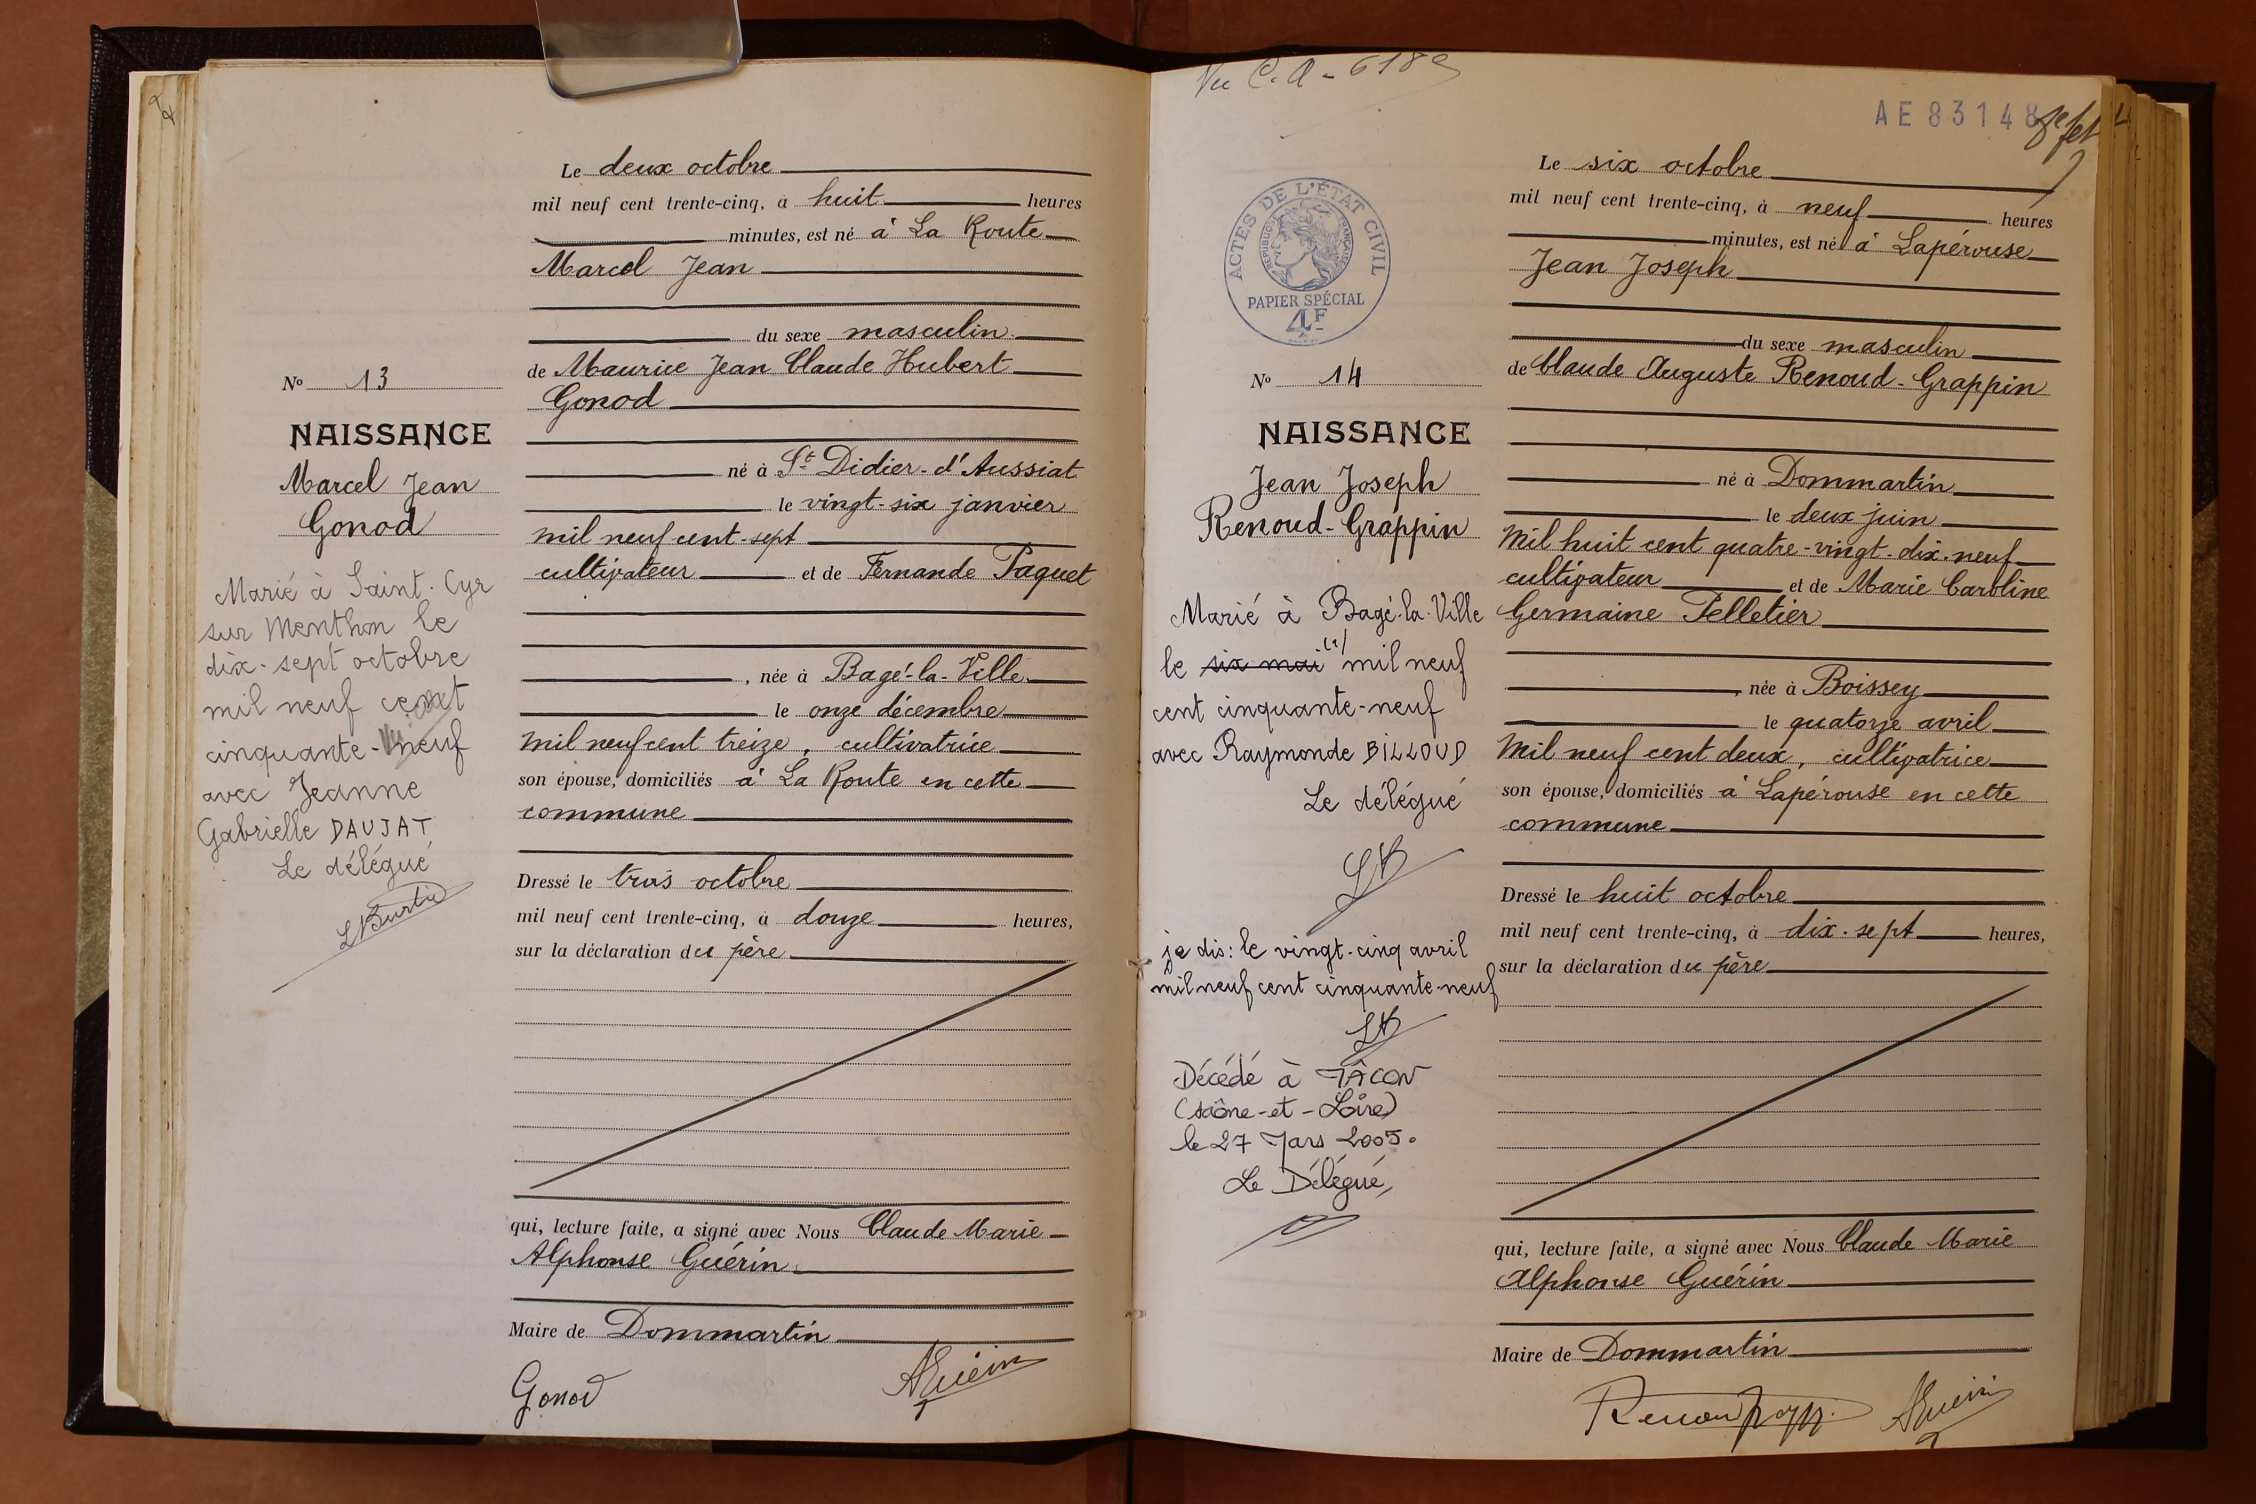 Le deux octobre
mil neuf cent trente-cinq, à huit heures
minutes, est né à La Route
Marcel Jean
du sexe masculin
de Maurice Jean Claude Hubert
Gonod
né à St Didier-d'Aussiat
le vingt-six janvier
mil neuf cent-sept
cultivateur et de Fernande Paquet
, née à Bagé-la-Ville
le onze décembre
mil neuf cent treize, cultivatrice
son épouse, domiciliés à La Route en cette
commune
Dressé le trois octobre
mil neuf cent trente-cinq, à douze heures,
sur la déclaration du père
qui, lecture faite, a signé avec Nous Claude Marie
Alphonse Guérin
Maire de Dommartin
Gonod AGuérin
No 13
NAISSANCE
Marcel Jean
Gonod
Marié à Saint-Cyr
sur Menthon le
dix-sept octobre
mil neuf cent
cinquante-neuf
avec Jeanne
Gabrielle DAUJAT
Le délégué
Vu C. A - 618
AE 83148
8e fet
ACTES DE L'ÉTAT CIVIL
RÉPUBLIQUE FRANÇAISE
PAPIER SPÉCIAL
4F
Le six octobre
mil neuf cent trente-cinq, à neuf heures
minutes, est né à Lapérouse
Jean Joseph
du sexe masculin
de Claude Auguste Renoud-Grappin
né à Dommartin
le deux juin
mil huit cent quatre-vingt-dix-neuf
cultivateur et de Marie Caroline
Germaine Pelletier
, née à Boissey
le quatorze avril
mil neuf cent deux, cultivatrice
son épouse, domiciliés à Lapérouse en cette
commune
Dressé le huit octobre
mil neuf cent trente-cinq, à dix-sept heures,
sur la déclaration du père
qui, lecture faite, a signé avec Nous Claude Marie
Alphonse Guérin
Maire de Dommartin
AGuérin
No 14
NAISSANCE
Jean Joseph
Renoud-Grappin
Marié à Bagé-la-Ville
le six mai (1) mil neuf
cent cinquante-neuf
avec Raymonde BILLOUD
Le délégué
LB
je dis: le vingt-cinq avril
mil neuf cent cinquante-neuf
LB
Décédé à MÂCON
(Saône-et-Loire)
le 27 Mars 2005.
Le Délégué,